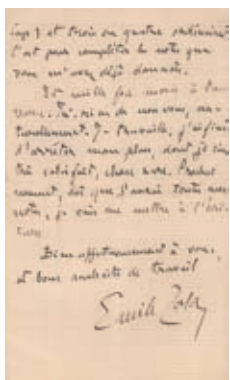 et trois ou quatre
c'est pour compléter les notes que
vous m'avez déjà données.
Et mille fois merci à
vous. rien de nouveau,
naturellement. Je travaille, j'ai fini
d'arrêter mon plan, dont je suis
très satisfait, chose rare.
que j'aurai toutes mes
notes, je vais me mettre à
Bien affectueusement à vous,
et bons souhaits de travail
Emile Zola